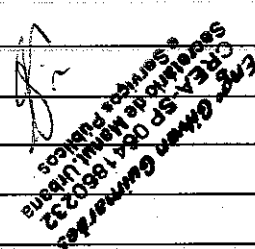 Engº Gilvan Guimarães
CREA SP 0641860232
Secretário de Manut. Urbana
e Serviços Públicos